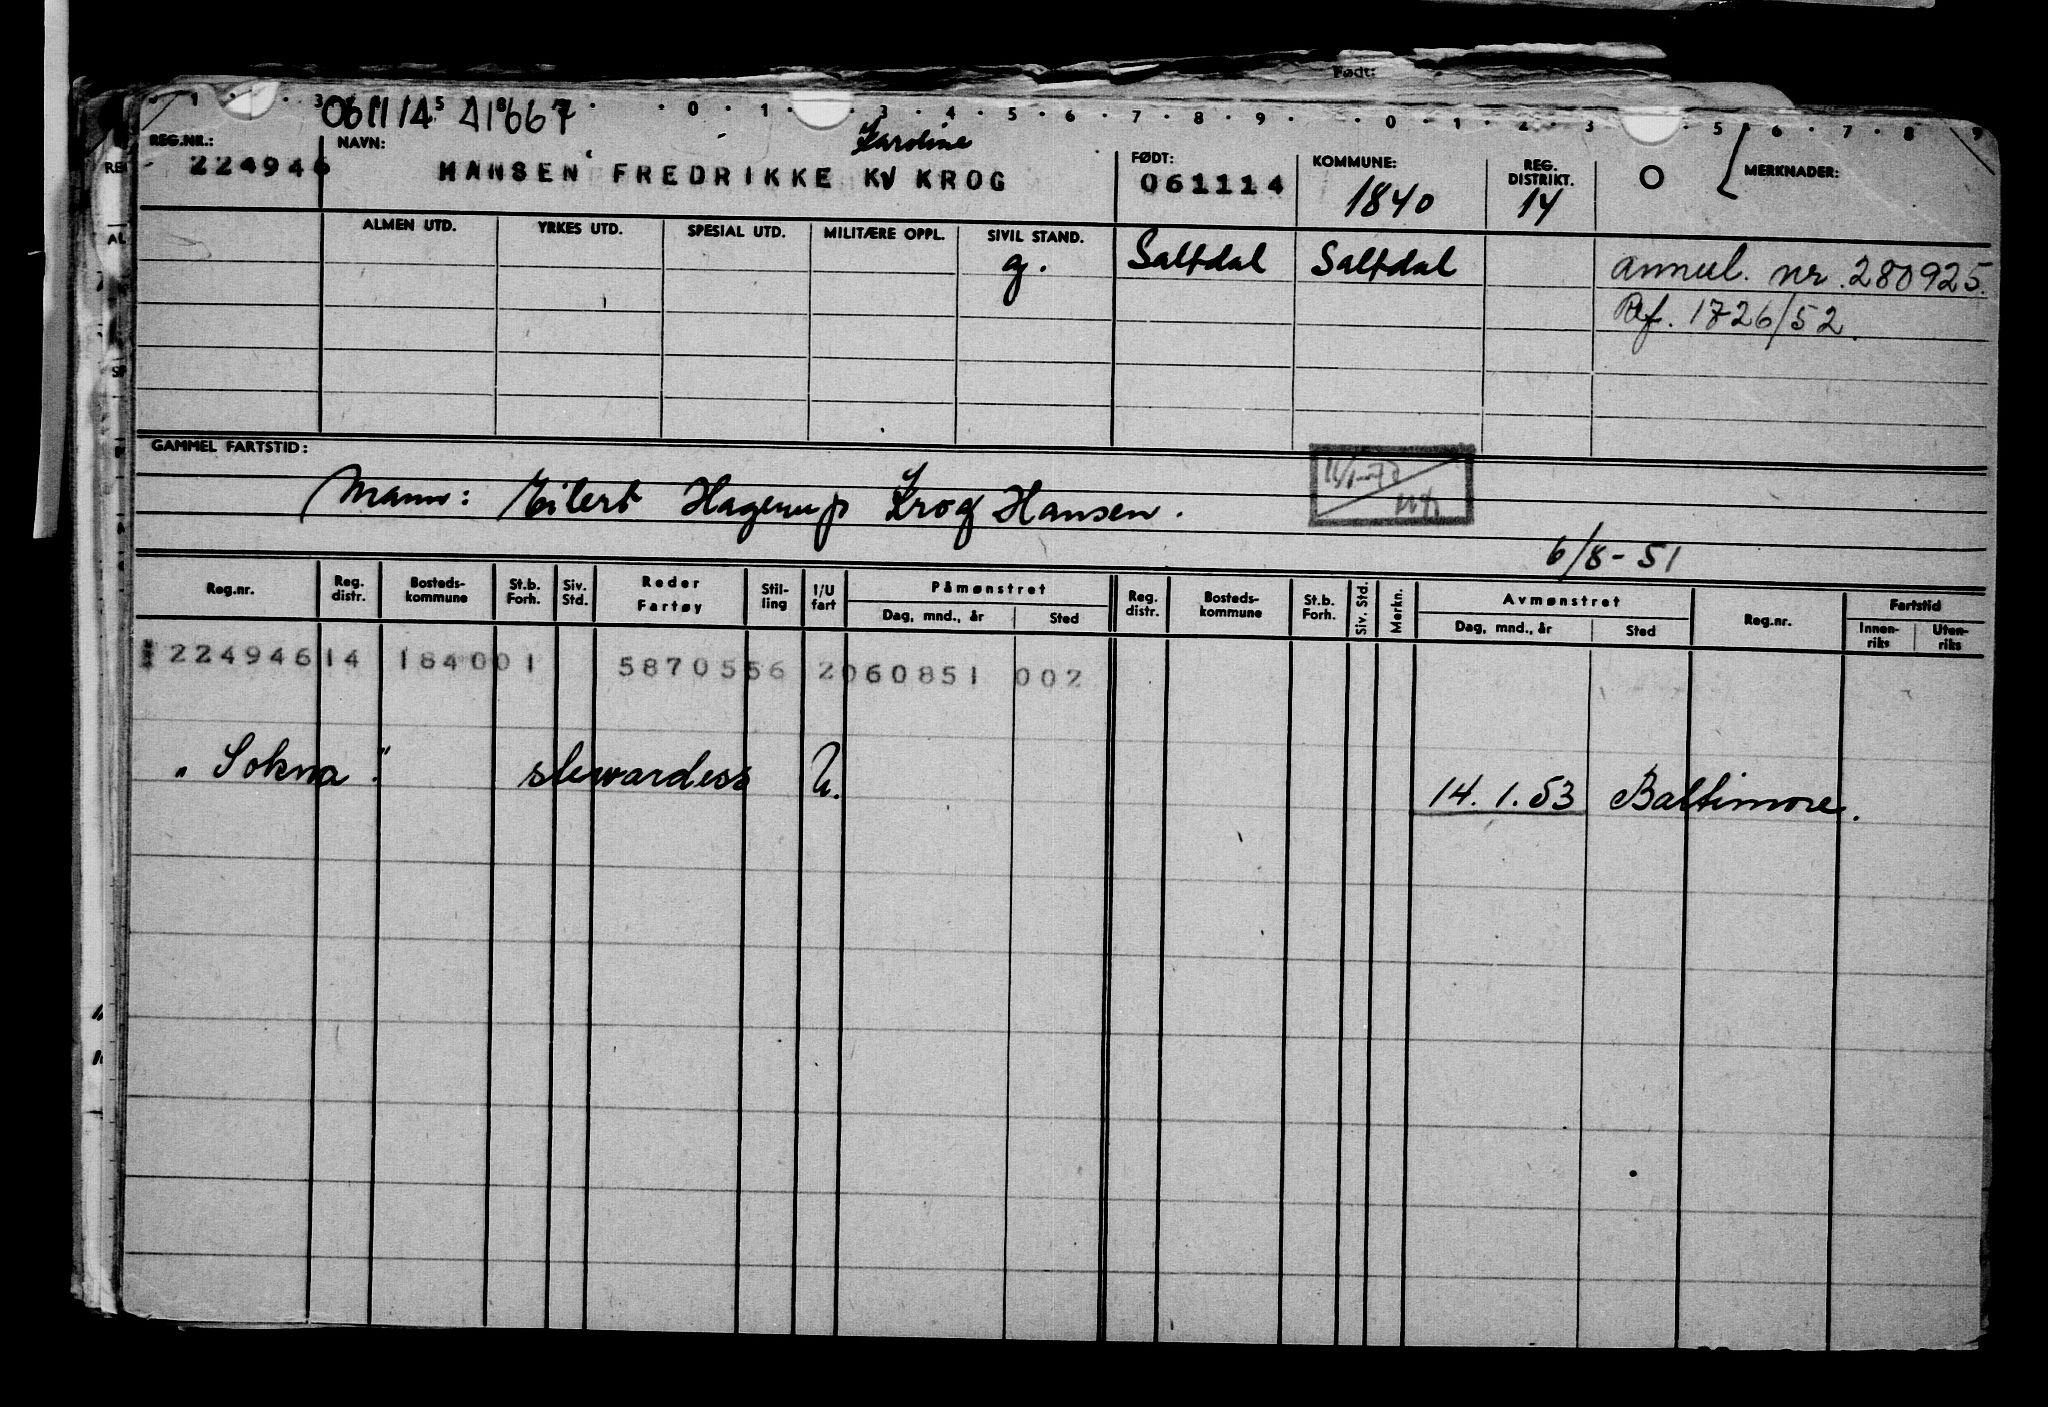 Født:
061114 41667
REG.NR.: 224946
NAVN: HANSEN FREDRIKKE KV KROG
Karoline
FØDT: 061114
KOMMUNE: 1840
REG. DISTRIKT. 14
O
MERKNADER:
ALMEN UTD. YRKES UTD. SPESIAL UTD. MILITÆRE OPPL. SIVIL STAND.
g. Saltdal Saltdal annul. nr. 280925.
Ref. 1726/52.
GAMMEL FARTSTID:
Mann: Eilert Hagerup Krog Hansen.
6/8-51
Reg.nr. Reg. distr. Bosteds-kommune St.b. Forh. Siv. Std. Reder Fartøy Stil-ling I/U fart Påmønstret Dag, mnd., år Sted Reg. distr. Bosteds-kommune St.b. Forh. Siv. Std. Merkn. Avmønstret Dag, mnd., år Sted Reg.nr. Fartstid Innen-riks Uten-riks
224946 14 184001 5870556 2060851 002
"Sokna" stewardess U. 14.1.53 Baltimore.